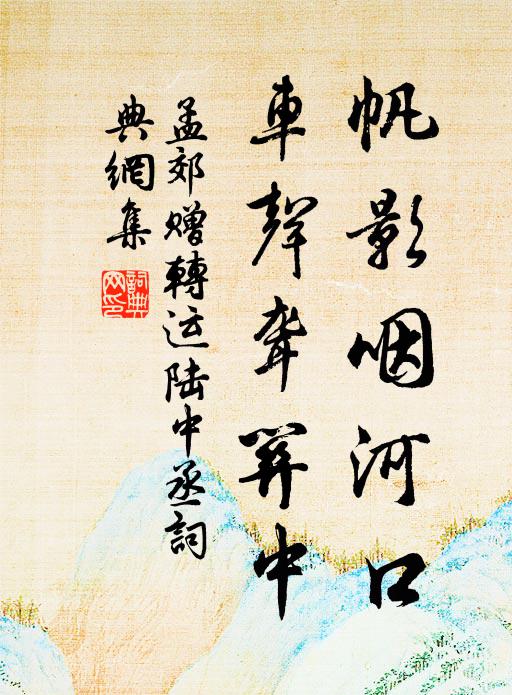 帆影咽河口
車聲聾關中
孟郊贈轉运陆中丞詞
典網集
詞典網印